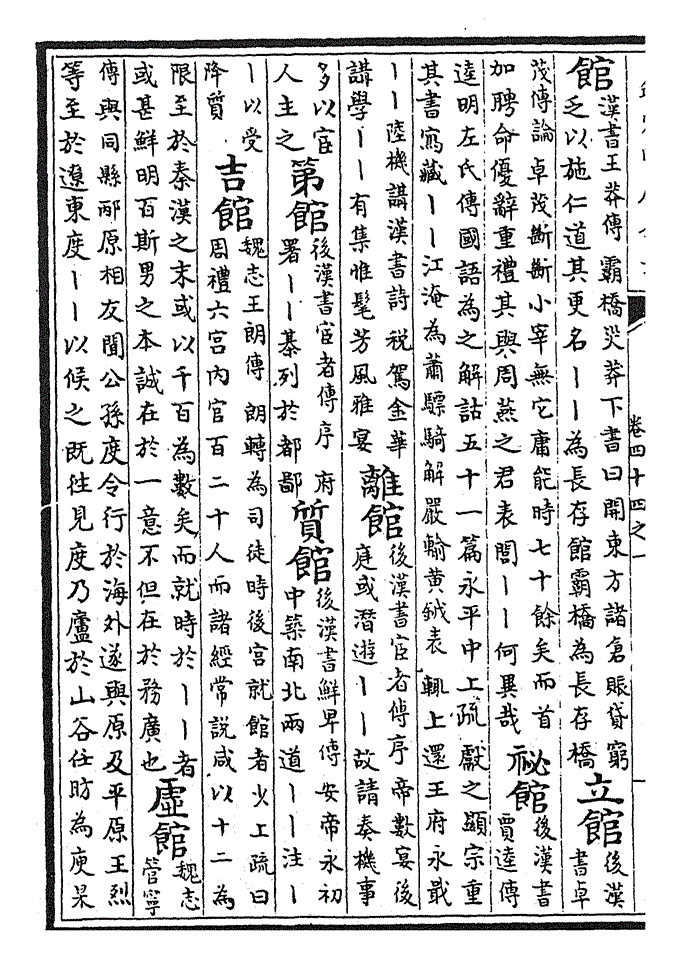 館
漢書王莽傳霸橋災莽下書曰開東方諸倉賑貸窮
乏以施仁道其更名丨丨為長存館霸橋為長存橋
立館
後漢
書卓
茂傳論卓茂斷斷小宰無它庸能時七十餘矣而首
加聘命優辭重禮其與周燕之君表閭丨丨何異哉
祕館
後漢書
賈逵傳
逵明左氏傳國語為之解詁五十一篇永平中上疏獻之顯宗重
其書寫藏丨丨江淹為蕭驃騎解嚴輸黃鉞表輒上還王府永戢
丨丨陸機講漢書詩稅駕金華
講學丨丨有集惟髦芳風雅宴
離館
後漢書宦者傳序帝數宴後
庭或潛遊丨丨故請奏機事
多以宦
人主之
第館
後漢書宦者傳序府
署丨丨棊列於都鄙
質館
後漢書鮮卑傳安帝永初
中築南北兩道丨丨注丨
丨以受
降質
吉館
魏志王朗傳朗轉為司徒時後宮就館者少上疏曰
周禮六宮內官百二十人而諸經常說咸以十二為
限至於秦漢之末或以千百為數矣而就時於丨丨者
或甚鮮明百斯男之本誠在於一意不但在於務廣也
虛館
魏志
管寧
傳與同縣邴原相友聞公孫度令行於海外遂與原及平原王烈
等至於遼東度丨丨以候之既往見度乃廬於山谷任昉為庾杲
卷四十四之一